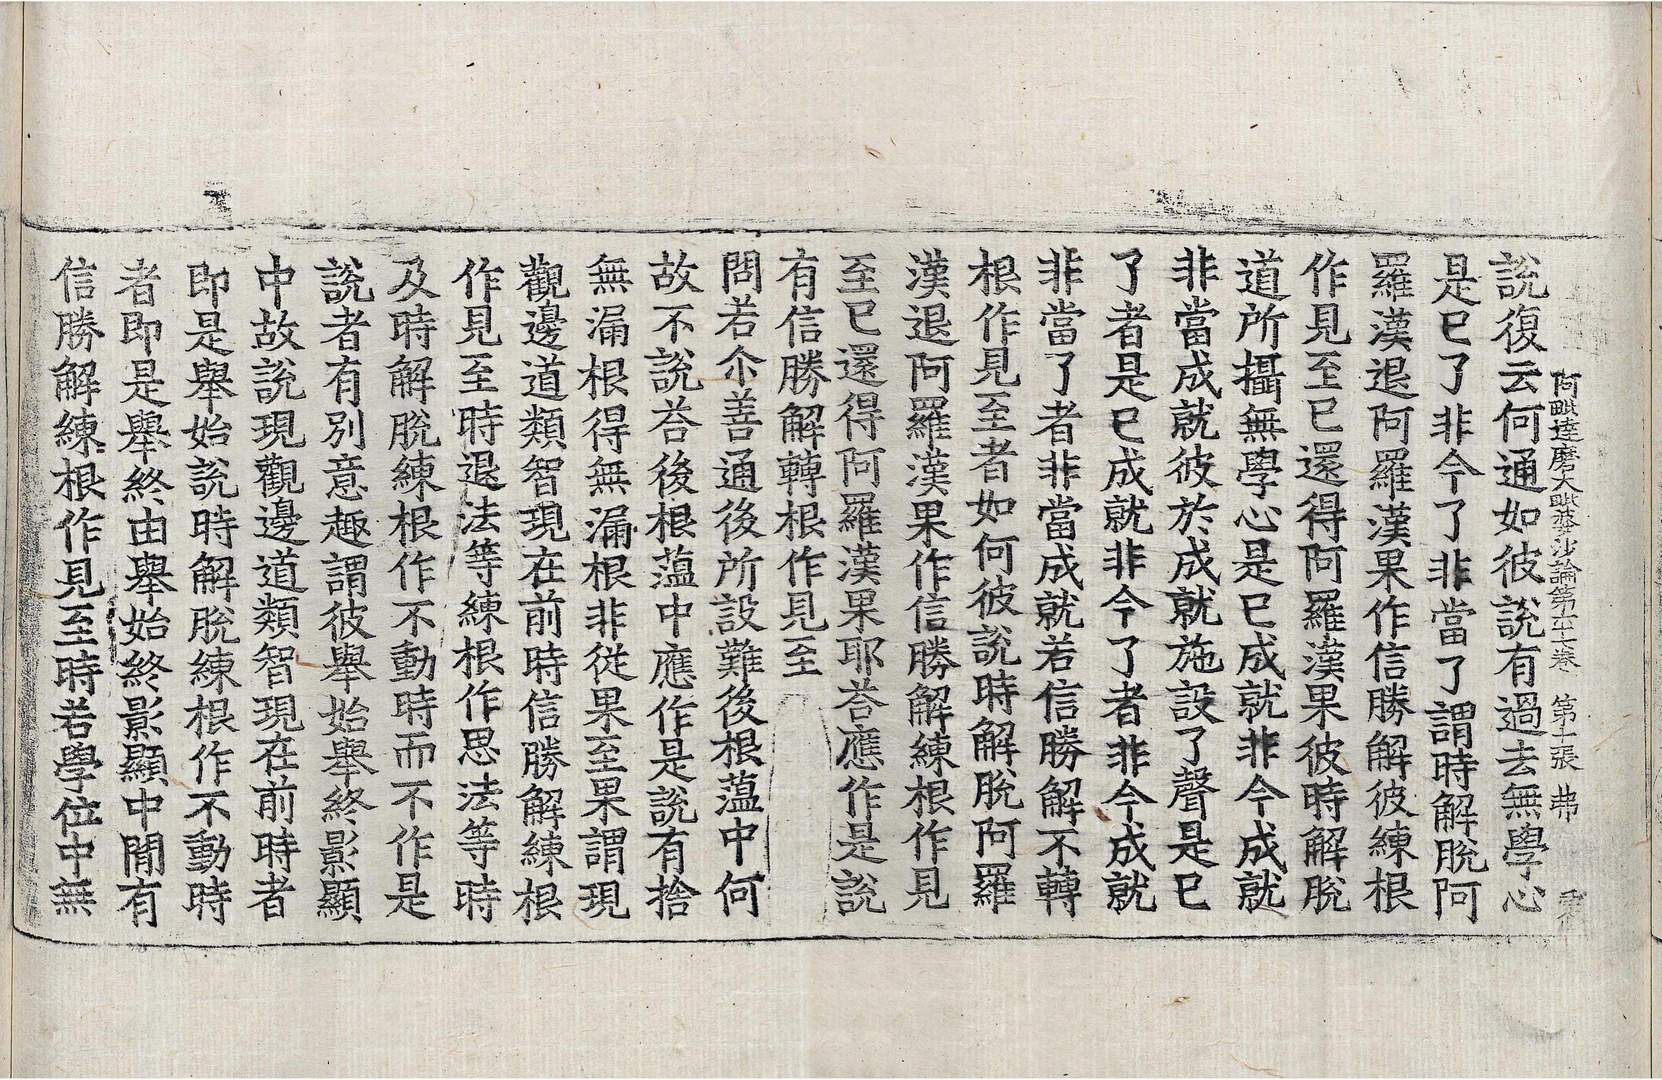 阿毗達磨大毗婆沙論第六十二卷 第十張 弗
說復云何通如彼說有過去無學心
是已了非今了非當了謂時解脫阿
羅漢退阿羅漢果作信勝解彼練根
作見至已還得阿羅漢果彼時解脫
道所攝無學心是已成就非今成就
非當成就彼於成就施設了聲是已
了者是已成就非今了者非今成就
非當了者非當成就若信勝解不轉
根作見至者如何彼說時解脫阿羅
漢退阿羅漢果作信勝解練根作見
至已還得阿羅漢果耶荅應作是說
有信勝解轉根作見至
問若尒善通後所設難後根蘊中何
故不說荅後根蘊中應作是說有捨
無漏根得無漏根非從果至果謂現
觀邊道類智現在前時信勝解練根
作見至時退法等練根作思法等時
及時解脫練根作不動時而不作是
說者有別意趣謂彼舉始舉終影顯
中故說現觀邊道類智現在前時者
即是舉始說時解脫練根作不動時
者即是舉終由舉始終影顯中閒有
信勝解練根作見至時若學位中無